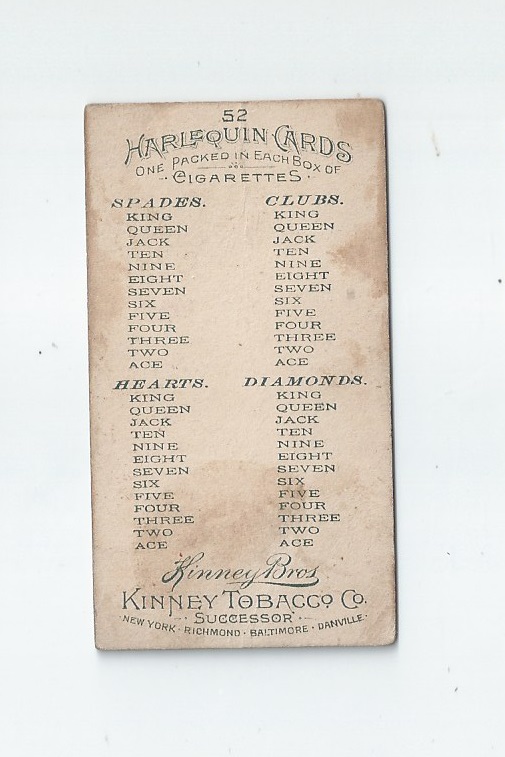 52
HARLEQUIN CARDS
ONE PACKED IN EACH BOX OF
CIGARETTES.
SPADES.
KING
QUEEN
JACK
TEN
NINE
EIGHT
SEVEN
SIX
FIVE
FOUR
THREE
TWO
ACE
CLUBS.
KING
QUEEN
JACK
TEN
NINE
EIGHT
SEVEN
SIX
FIVE
FOUR
THREE
TWO
ACE
HEARTS.
KING
QUEEN
JACK
TEN
NINE
EIGHT
SEVEN
SIX
FIVE
FOUR
THREE
TWO
ACE
DIAMONDS.
KING
QUEEN
JACK
TEN
NINE
EIGHT
SEVEN
SIX
FIVE
FOUR
THREE
TWO
ACE
Kinney Bros
KINNEY TOBACCO CO.
SUCCESSOR
NEW YORK · RICHMOND · BALTIMORE · DANVILLE